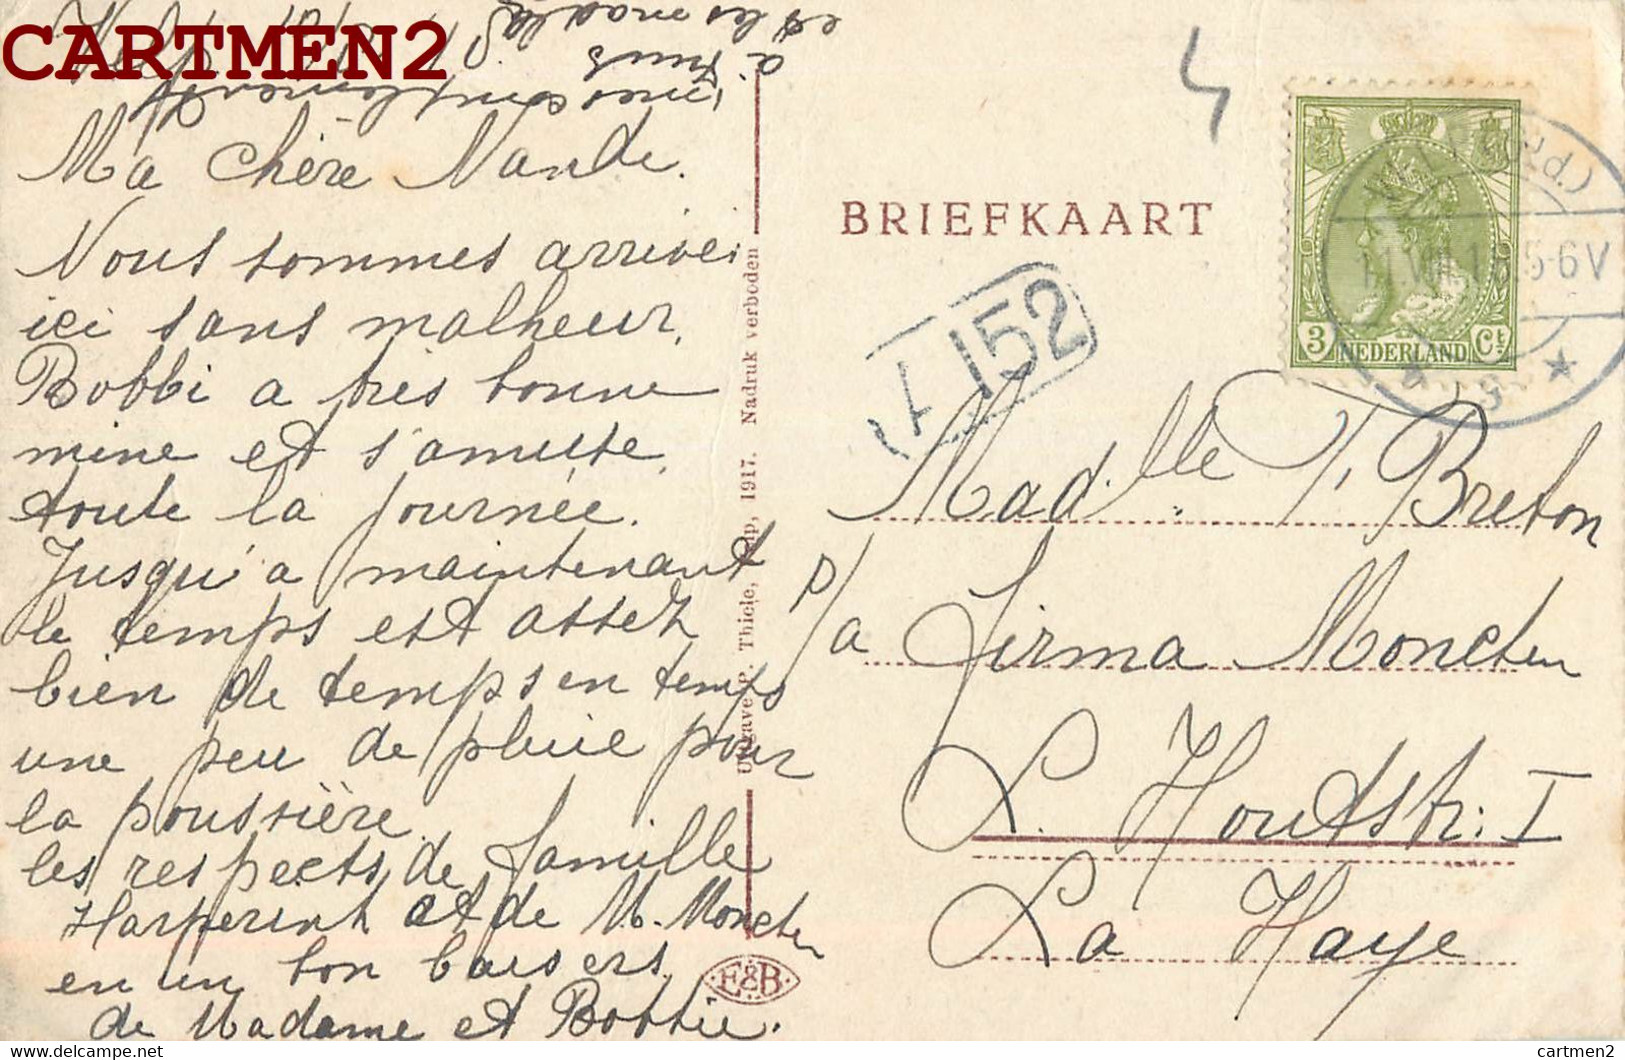 CARTMEN2
et les
Ma chère Nande.
Nous sommes arrivés
ici sans malheur.
Bobbi a très bonne
mine et s'amuse
toute la journée.
Jusqu'à maintenant
le temps est assez
bien de temps en temps
une peu de pluie pour
la poussière.
les respects de famille
Harperink et de M. Moncten
en un bon baisers
de Madame et Bobbie.
Uitgave P. Thiele, 1917. Nadruk verboden
E&B
BRIEFKAART
152
3 NEDERLAND Ct
5-6V
Mad.lle T. Breton
p/a Firma Moncten
L. Houtstr. I
La Haye
cartmen2